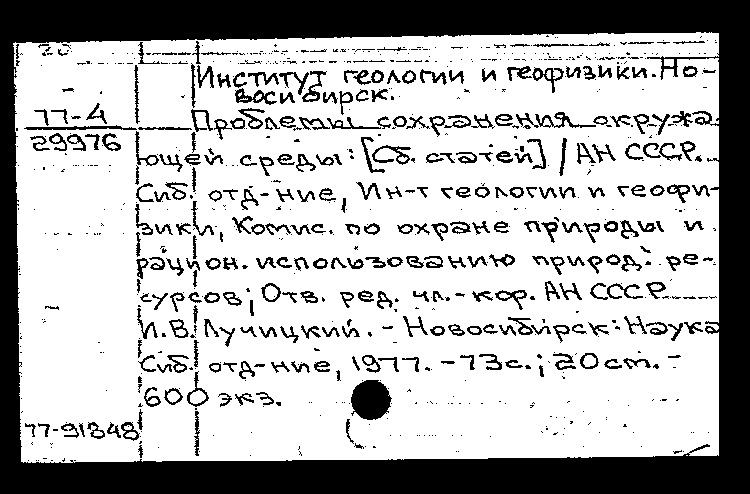 20
Институт геологии и геофизики. Но-
восибирск.
77-4
29976
Проблемы сохранения окружа-
ющей среды: [Сб. статей] / АН СССР.
Сиб. отд-ние, Ин-т геологии и геофи-
зики, Комис. по охране природы и
рацион. использованию природ. ре-
сурсов; Отв. ред. чл.-кор. АН СССР
И.В. Лучицкий. - Новосибирск: Наука
Сиб. отд-ние, 1977. - 73с.; 20 cm. -
600 экз.
77-91848